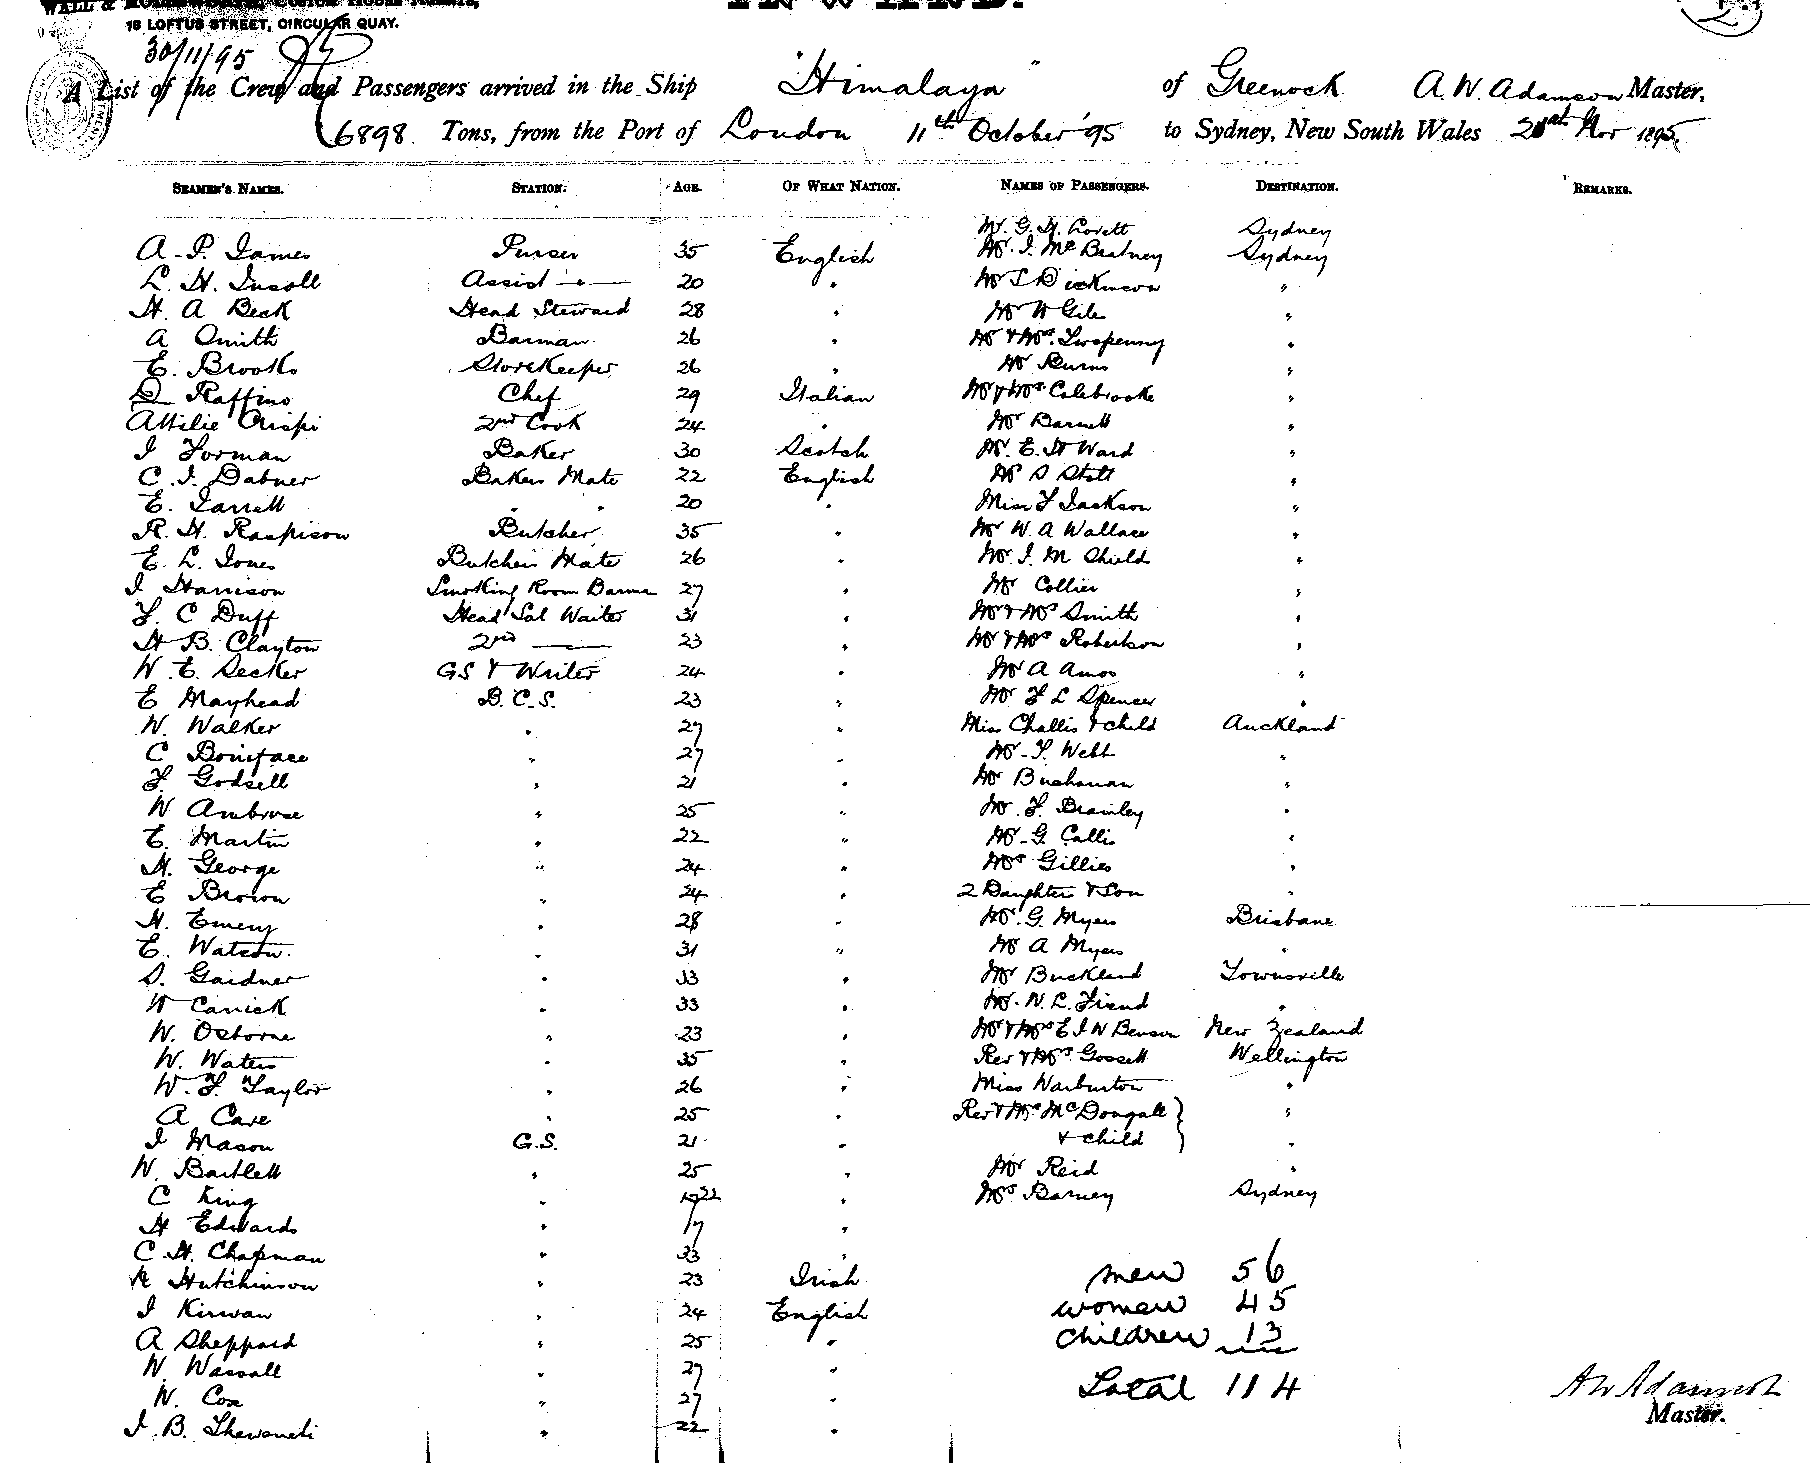 18 LOFTUS STREET, CIRCULAR QUAY.
30/11/95
A List of the Crew and Passengers arrived in the Ship "Himalaya" of Greenock A. W. Adamson Master,
6898 Tons, from the Port of London 11th October '95 to Sydney, New South Wales Nov 1895
SEAMEN'S NAMES. STATION. AGE. OF WHAT NATION. NAMES OF PASSENGERS. DESTINATION. REMARKS.
Mr. G. H. Lovett Sydney
A. P. James Purser 35 English Mr. J. McBratney Sydney
L. H. Insoll Assist - " - 20 " Mr Dickinson "
H. A Beck Head Steward 28 " Mr W Gile "
A Smith Barman 26 " Mr & Mrs. Twopenny "
E. Brooks StoreKeeper 26 " Mr Burns "
D Raffino Chef 29 Italian Mr & Mrs Colebrooke "
Attilie Crispi 2nd Cook 24 " Mr Barnett "
J Forman Baker 30 Scotch Mr. E. H Ward "
C. J. Dabner Bakers Mate 22 English Mr S Stott "
E. Jarrett " " 20 " Miss F Jackson "
R. H. Raspison Butcher 35 " Mr W. A Wallace "
E. L. Jones Butchers Mate 26 " Mr. J. M Shield "
J Harrison Smoking Room Barman 27 " Mr Collier "
F. C Duff Head Sal Waiter 31 " Mr & Mrs Smith "
H B. Clayton 2nd —— 23 " Mr & Mrs Robertson "
W. E. Secker GS & Writer 24 " Mr A Amos "
E Mayhead B.C.S. 23 " Mr F L Spencer "
W. Walker " 27 " Miss Challis & child Auckland
C Boniface " 27 " Mr - F. Webb "
F. Godsell " 21 " Mr Buchanan "
W. Ambrose " 25 " Mr. F. Bramley "
E. Martin " 22 " Mr - G. Callis "
H. George " 24 " Mrs Gillies "
E Brown " 24 " 2 Daughters & Son "
H. Emery " 28 " Mr. G. Myers Brisbane
E. Watson " 31 " Mr A Myers "
S. Gardner " 33 " Mr Buckland Townsville
W Carrick " 33 " Mr. W. L. Friend "
W. Osborne " 23 " Mr & Mrs E J W Benson New Zealand
W. Waters " 35 " Rev & Mrs. Gossett Wellington
W. F. Taylor " 26 " Miss Warburton "
A Cave " 25 " Rev & Mrs McDougall "
J Mason G.S. 21 " & child "
W. Bartlett " 25 " Mr Reid "
C King " 22 " Mrs Barney Sydney
H Edwards " 17 "
C. H. Chapman " 33 "
R Hutchinson " 23 Irish men 56
J Kirwan " 24 English women 45
A Sheppard " 25 " children 13
W. Wassall " 27 " Total 114
W. Cox " 27 " A W Adamson
J. B. " 22 " Master.